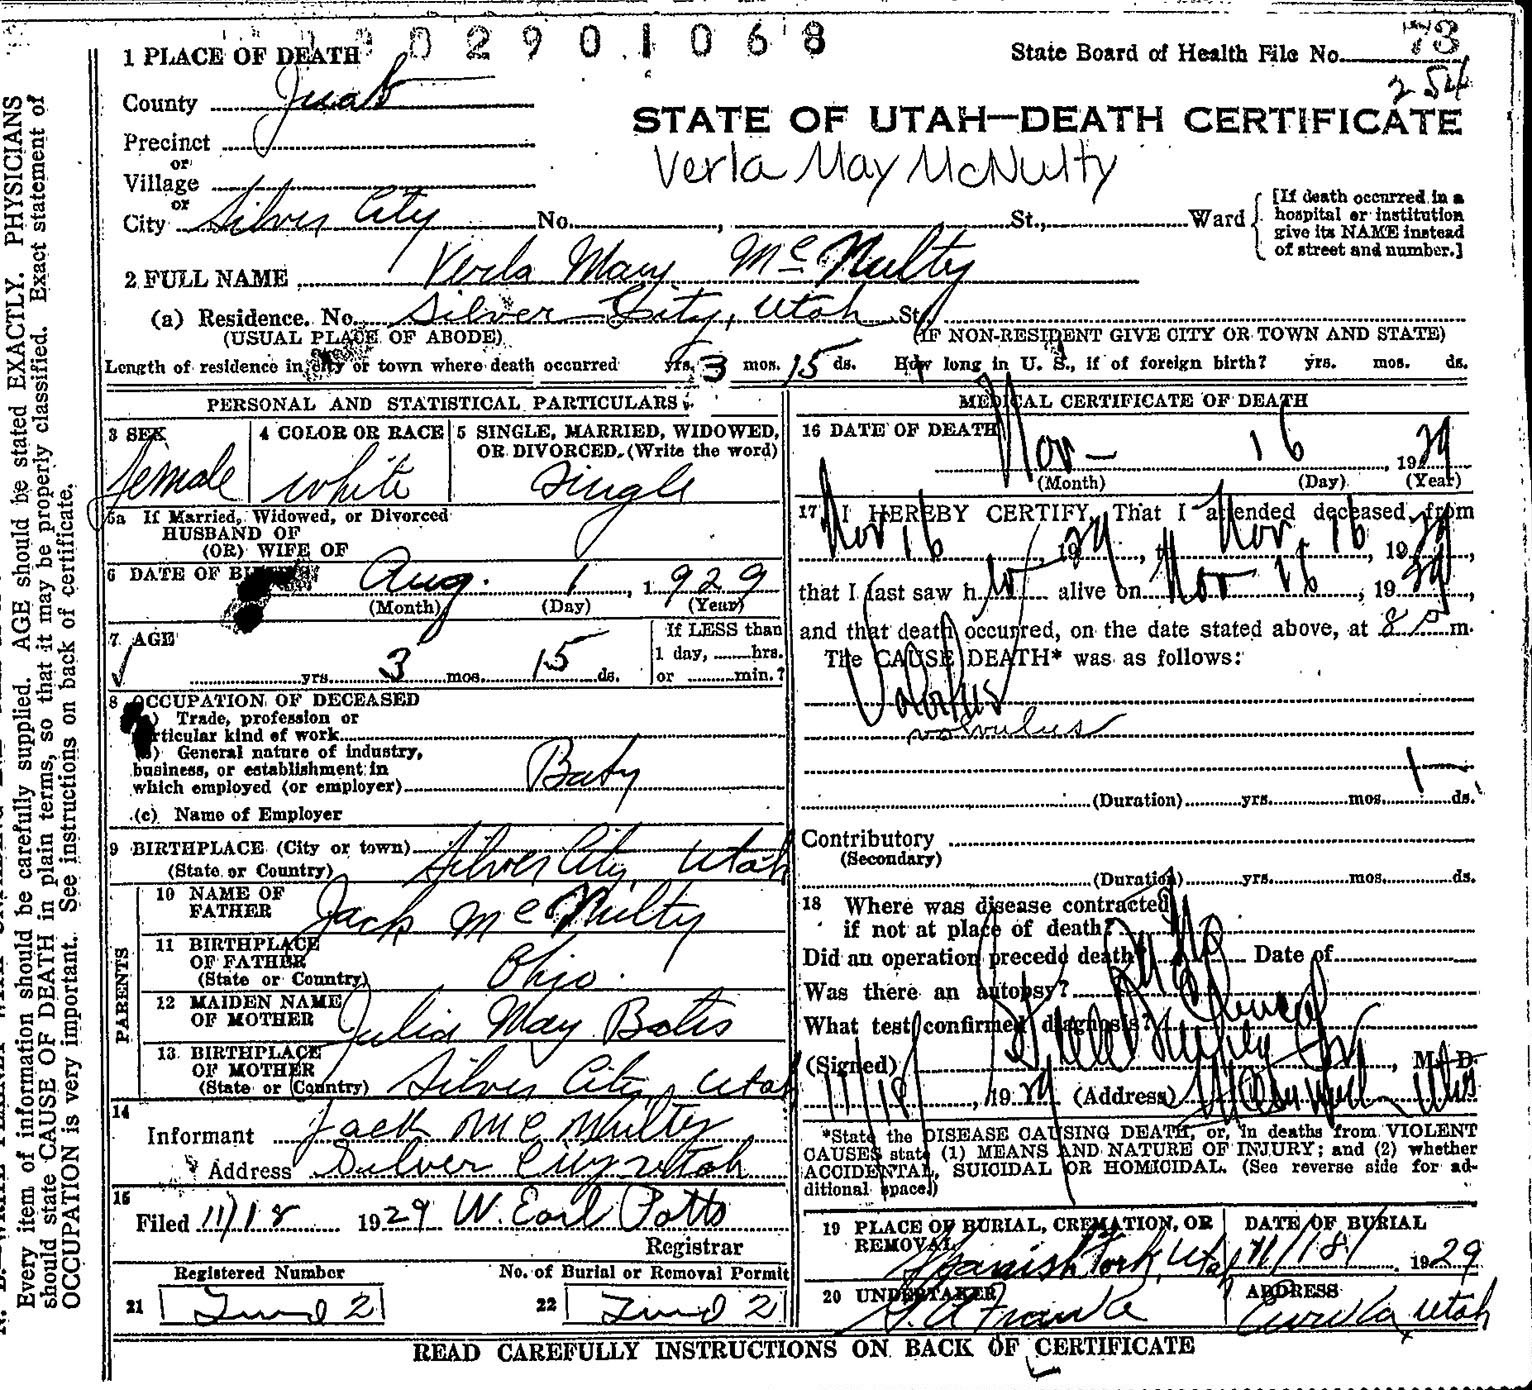 0 2 9 0 1 0 6 8
1 PLACE OF DEATH
State Board of Health File No. 73
254
County Juab
STATE OF UTAH—DEATH CERTIFICATE
Precinct
or
Verla May McNulty
Village
or
City Silver City No. , St., Ward
[If death occurred in a
hospital or institution
give its NAME instead
of street and number.]
2 FULL NAME Verla May McNulty
(a) Residence. No. Silver City, Utah St.
(USUAL PLACE OF ABODE) (IF NON-RESIDENT GIVE CITY OR TOWN AND STATE)
Length of residence in city or town where death occurred yrs. 3 mos. 15 ds. How long in U. S., if of foreign birth? yrs. mos. ds.
PERSONAL AND STATISTICAL PARTICULARS
3 SEX 4 COLOR OR RACE 5 SINGLE, MARRIED, WIDOWED,
OR DIVORCED. (Write the word)
female white Single
5a If Married, Widowed, or Divorced
HUSBAND OF
(OR) WIFE OF
6 DATE OF BIRTH Aug. 1, 1929
(Month) (Day) (Year)
7 AGE If LESS than
1 day, hrs.
yrs. 3 mos. 15 ds. or min.?
8 OCCUPATION OF DECEASED
(a) Trade, profession or
particular kind of work
(b) General nature of industry,
business, or establishment in
which employed (or employer) Baby
(c) Name of Employer
9 BIRTHPLACE (City or town) Silver City, Utah
(State or Country)
PARENTS
10 NAME OF
FATHER Jack McNulty
11 BIRTHPLACE
OF FATHER
(State or Country) Ohio.
12 MAIDEN NAME
OF MOTHER Julia May
13 BIRTHPLACE
OF MOTHER
(State or Country) Silver City, Utah
14
Informant Jack McNulty
Address Silver City Utah
15
Filed 11/18 1929 W. Earl Potts
Registrar
Registered Number No. of Burial or Removal Permit
21 2 22 2
MEDICAL CERTIFICATE OF DEATH
16 DATE OF DEATH
Nov- 16, 1929
(Month) (Day) (Year)
17 I HEREBY CERTIFY, That I attended deceased from
Nov 16, 1929, to Nov 16, 1929,
that I last saw h alive on Nov 16, 1929,
and that death occurred, on the date stated above, at 8 P m.
The CAUSE DEATH* was as follows:
Volvulus
volvulus
1—
(Duration) yrs. mos. ds.
Contributory
(Secondary)
(Duration) yrs. mos. ds.
18 Where was disease contracted
if not at place of death?
Did an operation precede death? No Date of
Was there an autopsy? No
What test confirmed diagnosis? Clinical
(Signed) , M. D.
11/18, 1929 (Address) Utah
*State the DISEASE CAUSING DEATH, or, in deaths from VIOLENT
CAUSES state (1) MEANS AND NATURE OF INJURY; and (2) whether
ACCIDENTAL, SUICIDAL OR HOMICIDAL. (See reverse side for ad-
ditional space.)
19 PLACE OF BURIAL, CREMATION, OR
REMOVAL DATE OF BURIAL
Spanish Fork, Utah 11/18/ 1929
20 UNDERTAKER ADDRESS
Franke Eureka, Utah
READ CAREFULLY INSTRUCTIONS ON BACK OF CERTIFICATE
Every item of information should be carefully supplied. AGE should be stated EXACTLY. PHYSICIANS
should state CAUSE OF DEATH in plain terms, so that it may be properly classified. Exact statement of
OCCUPATION is very important. See instructions on back of certificate.